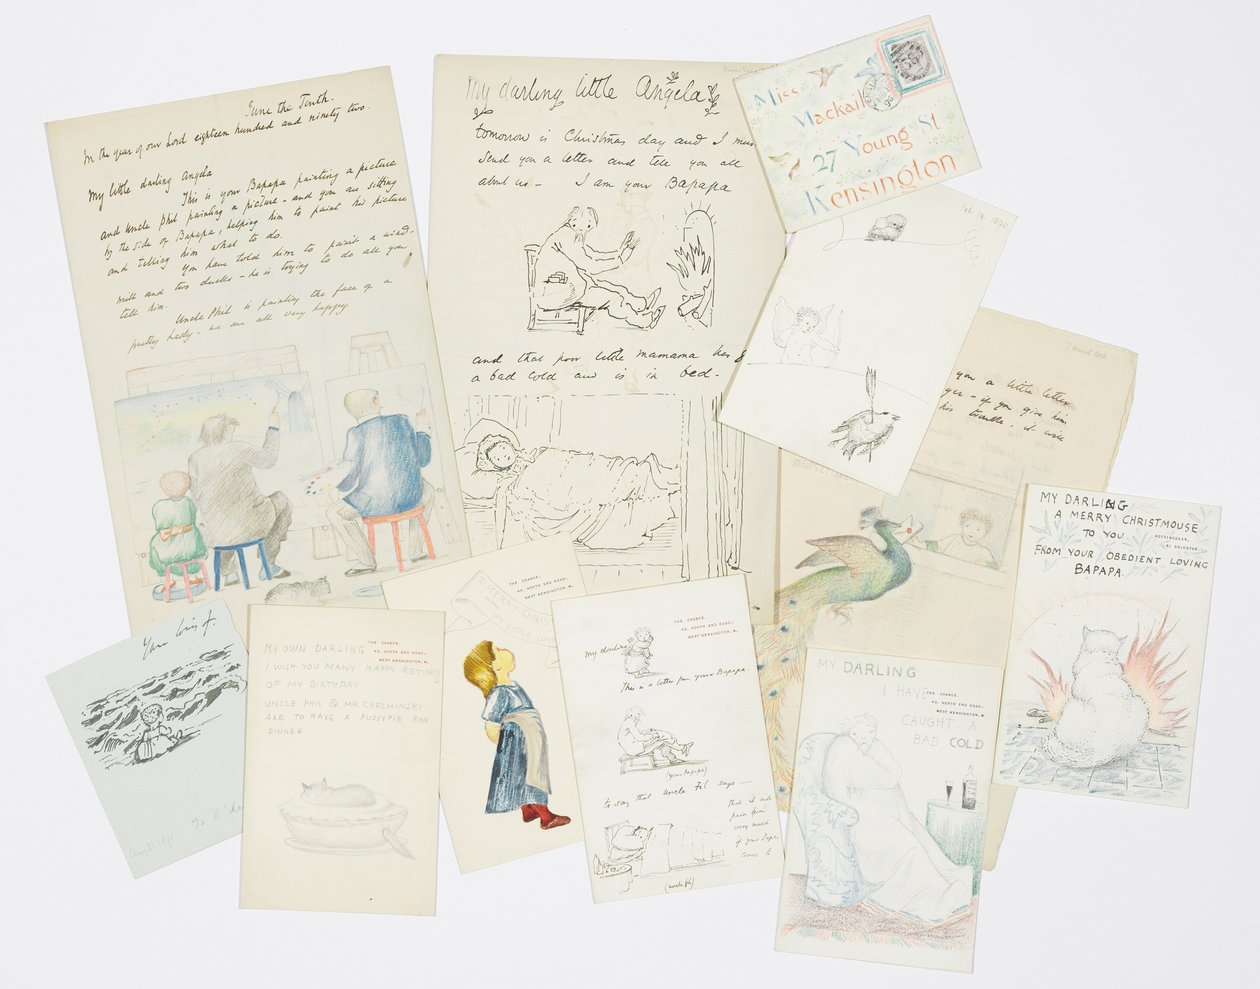 June the Tenth.
In the year of our Lord eighteen hundred and ninety two.
My little darling Angela
This is your Bapapa painting a picture
and Uncle Phil painting a picture - and you are sitting
by the side of Bapapa, helping him to paint his picture
and telling him what to do.
You have told him to paint a wind-
mill and two ducks - he is trying to do all you
tell him.
Uncle Phil is painting the face of a
pretty lady - we are all very happy
My darling little Angela
tomorrow is Christmas day and I mus
send you a letter and tell you all
about us - I am your Bapapa
and that poor little mamama has
a bad cold and is in bed -
Miss
Mackail
27 Young St
Kensington
Feb. 14. 1890
you a little letter
if you give him
his trouble, it will
MY DARLING
A MERRY CHRISTMOUSE
TO YOU
ROTTINGDEAN,
NR BRIGHTON.
FROM YOUR OBEDIENT LOVING
BAPAPA.
MERRY CHRIS
MY LITTLE LOVE
THE GRANGE,
49, NORTH END ROAD,
WEST KENSINGTON, W.
MY OWN DARLING
THE GRANGE,
49, NORTH END ROAD,
WEST KENSINGTON, W.
I WISH YOU MANY HAPPY RETURNS
OF MY BIRTHDAY
UNCLE PHIL & MR. CHELMINSKI
ARE TO HAVE A PUSSYPIE FOR
DINNER
THE GRANGE,
49, NORTH END ROAD,
WEST KENSINGTON, W.
My darling
This is a letter from your Bapapa.
(your Bapapa)
to say that Uncle Fil says -
that it will
pain him
very much
if your Papa
comes to
(uncle fil)
MY DARLING
I HAVE
THE GRANGE,
49, NORTH END ROAD,
WEST KENSINGTON, W.
CAUGHT A
BAD COLD